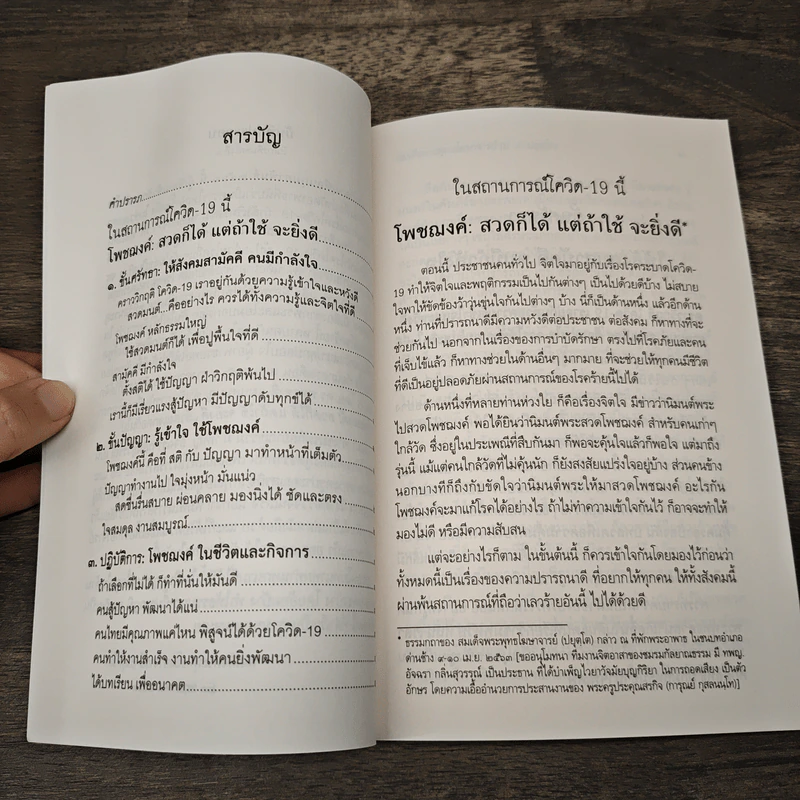 สารบัญ
คำปรารภ
ในสถานการณ์โควิด-19 นี้
โพชฌงค์: สวดก็ได้ แต่ถ้าใช้ จะยิ่งดี
๑. ขั้นศรัทธา: ให้สังคมสามัคคี คนมีกำลังใจ
คราววิกฤติ โควิด-19 เราอยู่กันด้วยความรู้เข้าใจและหวังดี
สวดมนต์...คืออย่างไร ควรได้ทั้งความรู้และจิตใจที่ดี
โพชฌงค์ หลักธรรมใหญ่
ใช้สวดมนต์ก็ได้ เพื่อปูพื้นใจที่ดี
สามัคคี มีกำลังใจ
ตั้งสติได้ ใช้ปัญญา ฝ่าวิกฤติพ้นไป
เรานี้ก็มีเรี่ยวแรงสู้ปัญหา มีปัญญาดับทุกข์ได้
๒. ขั้นปัญญา: รู้เข้าใจ ใช้โพชฌงค์
โพชฌงค์นี้ คือที่ สติ กับ ปัญญา มาทำหน้าที่เต็มตัว
ปัญญาทำงานไป ใจมุ่งหน้า มั่นแน่ว
สดชื่นรื่นสบาย ผ่อนคลาย มองนิ่งได้ ชัดและตรง
ใจสมดุล งานสมบูรณ์
๓. ปฏิบัติการ: โพชฌงค์ ในชีวิตและกิจการ
ถ้าเลือกที่ไม่ได้ ก็ทำที่นั่นให้มันดี
คนสู้ปัญหา พัฒนาได้แน่
คนไทยมีคุณภาพแค่ไหน พิสูจน์ได้ด้วยโควิด-19
คนทำให้งานสำเร็จ งานทำให้คนยิ่งพัฒนา
ได้บทเรียน เพื่ออนาคต
ในสถานการณ์โควิด-19 นี้
โพชฌงค์: สวดก็ได้ แต่ถ้าใช้ จะยิ่งดี*
ตอนนี้ ประชาชนคนทั่วไป จิตใจมาอยู่กับเรื่องโรคระบาดโควิด-
19 ทำให้จิตใจและพฤติกรรมเป็นไปกันต่างๆ เป็นไปด้วยดีบ้าง ไม่สบาย
ใจพาให้ขัดข้องว้าวุ่นขุ่นใจกันไปต่างๆ บ้าง นี่ก็เป็นด้านหนึ่ง แล้วอีกด้าน
หนึ่ง ท่านที่ปรารถนาดีมีความหวังดีต่อประชาชน ต่อสังคม ก็หาทางที่จะ
ช่วยกันไป นอกจากในเรื่องของการบำบัดรักษา ตรงไปที่โรคภัยและคน
ที่เจ็บไข้แล้ว ก็หาทางช่วยในด้านอื่นๆ มากมาย ที่จะช่วยให้ทุกคนมีชีวิต
ที่ดีเป็นอยู่ปลอดภัยผ่านสถานการณ์ของโรคร้ายนี้ไปได้
ด้านหนึ่งที่หลายท่านห่วงใย ก็คือเรื่องจิตใจ มีข่าวว่านิมนต์พระ
ไปสวดโพชฌงค์ พอได้ยินว่านิมนต์พระสวดโพชฌงค์ สำหรับคนเก่าๆ
ใกล้วัด ซึ่งอยู่ในประเพณีที่สืบกันมา ก็พอจะคุ้นใจแล้วก็พอใจ แต่มาถึง
รุ่นนี้ แม้แต่คนใกล้วัดที่ไม่คุ้นนัก ก็ยังสงสัยแปร่งใจอยู่บ้าง ส่วนคนข้าง
นอกบางทีก็ถึงกับขัดใจว่านิมนต์พระให้มาสวดโพชฌงค์ อะไรกัน
โพชฌงค์จะมาแก้โรคได้อย่างไร ถ้าไม่ทำความเข้าใจกันไว้ ก็อาจจะทำให้
มองไม่ดี หรือมีความสับสน
แต่จะอย่างไรก็ตาม ในขั้นต้นนี้ ก็ควรเข้าใจกันโดยมองไว้ก่อนว่า
ทั้งหมดนี้เป็นเรื่องของความปรารถนาดี ที่อยากให้ทุกคน ให้ทั้งสังคมนี้
ผ่านพ้นสถานการณ์ที่ถือว่าเลวร้ายอันนี้ ไปได้ด้วยดี
* ธรรมกถาของ สมเด็จพระพุทธโฆษาจารย์ (ปยุตฺโต) กล่าว ณ ที่พักพระอาพาธ ในชนบทอำเภอ
ด่านช้าง ๙-๑๐ เม.ย. ๒๕๖๓ [ขออนุโมทนา ทีมงานจิตอาสาของชมรมกัลยาณธรรม มี ทพญ.
อัจฉรา กลิ่นสุวรรณ์ เป็นประธาน ที่ได้บำเพ็ญไวยาวัจมัยบุญกิริยา ในการถอดเสียง เป็นตัว
อักษร โดยความเอื้ออำนวยการประสานงานของ พระครูประคุณสรกิจ (การุณย์ กุสลนนฺโท)]